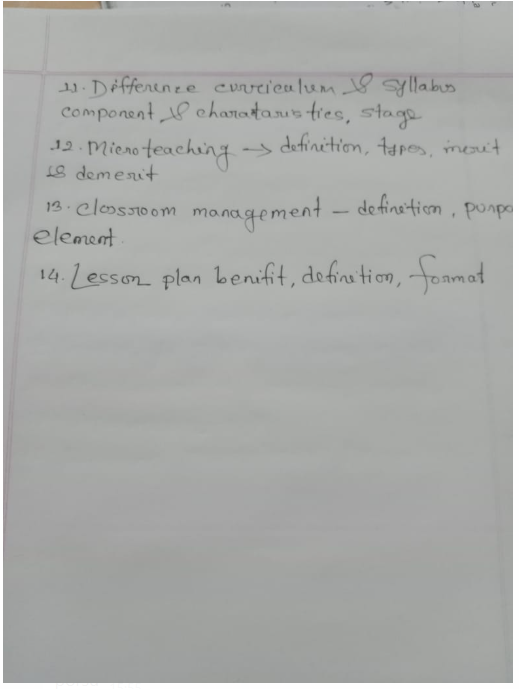 11. Difference curriculum & syllabus
component & charataristies, stage
12. Microteaching → definition, types, merit
& demerit
13. Classroom management – definition, purpo
element.
14. Lesson plan benifit, definition, format